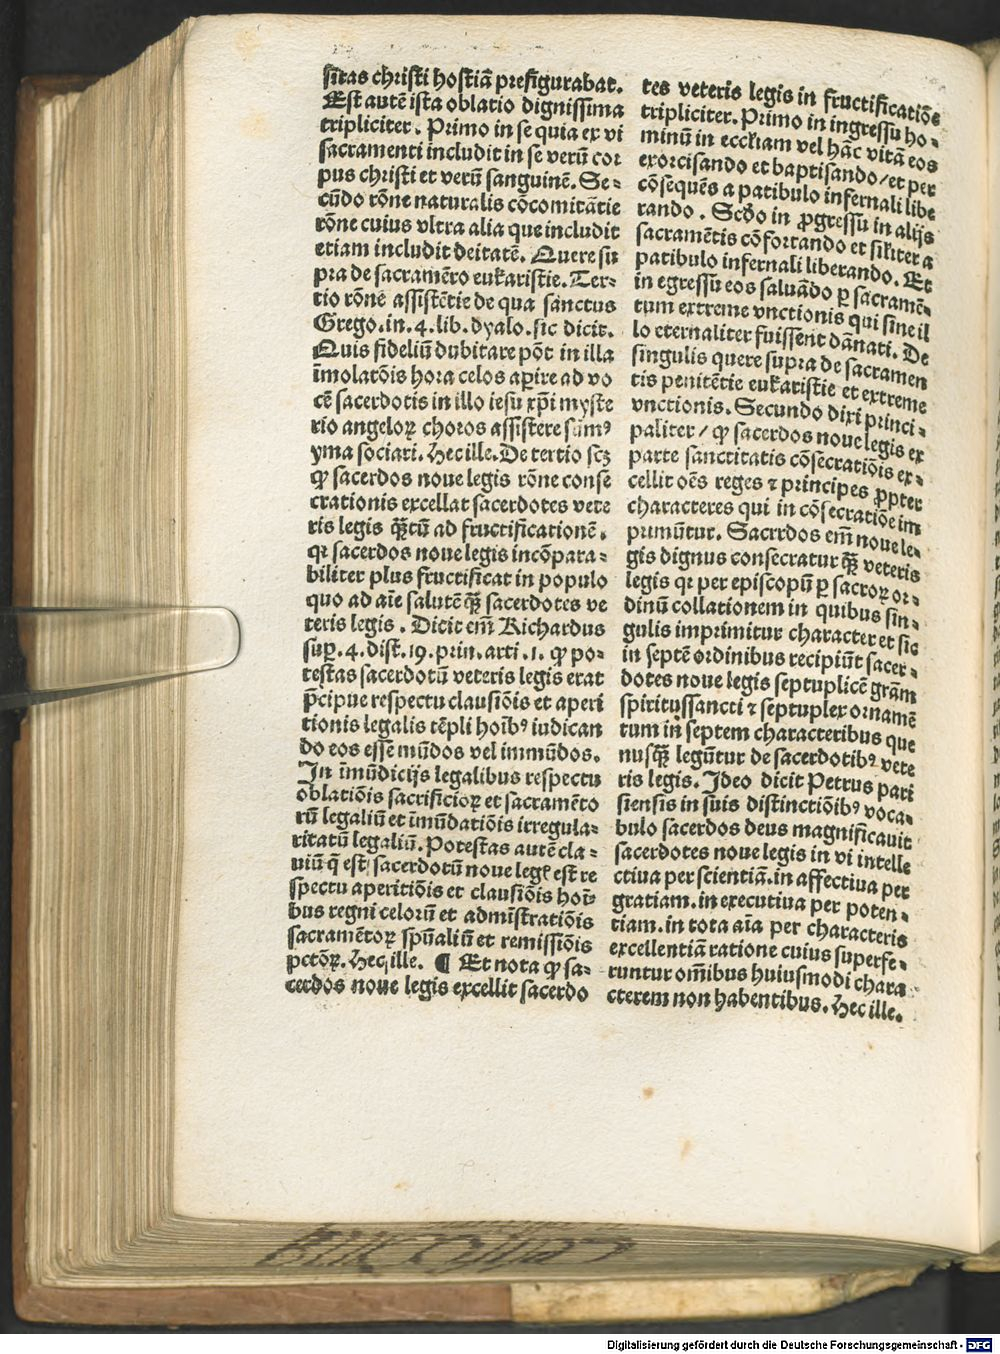 sitas christi hostiā prefigurabat.
Est autē ista oblatio dignissima
tripliciter. Primo in se quia ex vi
sacramenti includit in se verū cor
pus christi et verū sanguinē. Se-
cūdo rōne naturalis cōcomitātie
rōne cuius vltra alia que includit
etiam includit deitatē. Quere su
pra de sacramēto eukaristie. Ter-
tio rōne assistētie de qua sanctus
Grego. in. 4. lib. dyalo. sic dicit.
Quis fideliū dubitare pōt in illa
īmolatōis hora celos aꝑire ad vo
cē sacerdotis in illo iesu xp̄i myste
rio angeloꝝ choros assistere sūmꝰ
yma sociari. Hec ille. De tertio scꝫ
ꝙ sacerdos noue legis rōne conse
crationis excellat sacerdotes vete
ris legis q̄ꝫtū ad fructificationē.
qꝛ sacerdos noue legis incōpara-
biliter plus fructificat in populo
quo ad aīe salutē q̄ꝫ sacerdotes ve
teris legis. Dicit em̄ Richardus
suꝑ. 4. dist. 19. prin. arti. 1. ꝙ po-
testas sacerdotū veteris legis erat
p̄cipue respectu clausiōis et aperi
tionis legalis tēpli hoībꝰ iudican
do eos esse mūdos vel immūdos.
In īmūdicijs legalibus respectu
oblatiōis sacrificioꝝ et sacramēto
rū legaliū et īmūdatiōis irregula-
ritatū legaliū. Potestas autē cla-
uiū q̄ est sacerdotū noue legꝭ est re
spectu aperitiōis et clausiōis hoī-
bus regni celorū et admīstratiōis
sacramētoꝝ spūaliū et remissiōis
pctōꝝ. Hec ille. ¶ Et nota ꝙ sa-
cerdos noue legis excellit sacerdo
tes veteris legis in fructificatiōe
tripliciter. Primo in ingressu ho-
minū in eccłiam vel hāc vitā eos
exorcisando et baptisando/et per
cōsequēs a patibulo infernali libe
rando. Scd̄o in ꝓgressu in alijs
sacramētis cōfortando et siłiter a
patibulo infernali liberando. Et
in egressu eos saluādo ꝑ sacramē-
tum extreme vnctionis qui sine il
lo eternaliter fuissent dānati. De
singulis quere supra de sacramen
tis penitētie eukaristie et extreme
vnctionis. Secundo dixi princi-
paliter/ꝙ sacerdos noue legis ex
parte sanctitatis cōsecratiōis ex-
cellit oēs reges ⁊ principes ꝓpter
characteres qui in cōsecratiōe im
primūtur. Sacrrdos em̄ noue le-
gis dignus consecratur q̄ꝫ veteris
legis qꝛ per episcopū ꝑ sacroꝝ or-
dinū collationem in quibus sin-
gulis imprimitur character et sic
in septē ordinibus recipiūt sacer-
dotes noue legis septuplicē grām
spiritussancti ⁊ septuplex ornamē
tum in septem characteribus que
nusq̄ꝫ legūtur de sacerdotibꝰ vete
ris legis. Ideo dicit Petrus pari
siensis in suis distinctiōibꝰ voca-
bulo sacerdos deus magnificauit
sacerdotes noue legis in vi intelle
ctiua per scientiā. in affectiua per
gratiam. in executiua per poten-
tiam. in tota aīa per characteris
excellentiā ratione cuius superfe-
runtur om̄ibus huiusmodi chara
cterem non habentibus. Hec ille.
Digitalisierung gefördert durch die Deutsche Forschungsgemeinschaft - DFG